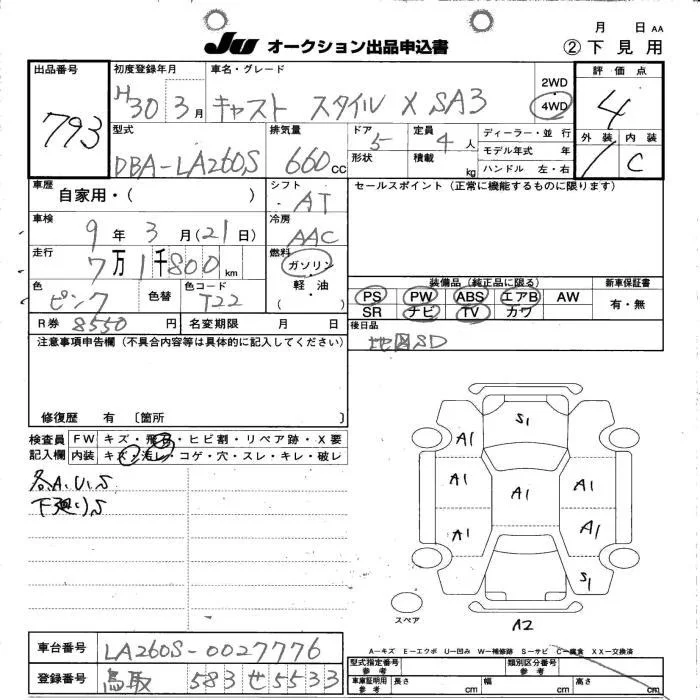 JU オークション出品申込書
月 日 AA
② 下見用
出品番号 793
初度登録年月 H30 3月
車名・グレード キャスト スタイル X SA3
2WD
4WD
評価点 4
外装 1 内装 C
型式 DBA-LA260S
排気量 660 CC
ドア 5 形状
定員 4 人 積載 kg
ディーラー・並行
モデル年式 年
ハンドル 左・右
車歴 自家用・( )
シフト AT
セールスポイント(正常に機能するものに限ります)
車検 9年 3月(21日)
冷房 AAC
走行 7万1千800 km
燃料 ガソリン 軽油( )
色 ピンク 色替 色コード T22
装備品(純正品に限る) 新車保証書
PS PW ABS エアB AW 有・無
SR ナビ TV カワ
R券 8550円 名変期限 月 日
後日品 地図SD
注意事項申告欄(不具合内容等は具体的に記入してください)
修復歴 有 [箇所 ]
検査員記入欄 FW キズ・飛石・ヒビ割・リペア跡・X要
内装 キズ・汚レ・コゲ・穴・スレ・キレ・破レ
各A.U.S
下廻りS
S1
A1 A1
A1 A1 A1
A1 A1
S1
スペア
A2
A-キズ E-エクボ U-凹み W-補修跡 S-サビ C-腐食 XX-交換済
車台番号 LA260S-0027776
登録番号 鳥取 583 せ 5533
型式指定番号 参考 類別区分番号 参考
車庫証明用 参考 長さ cm 幅 cm 高さ cm